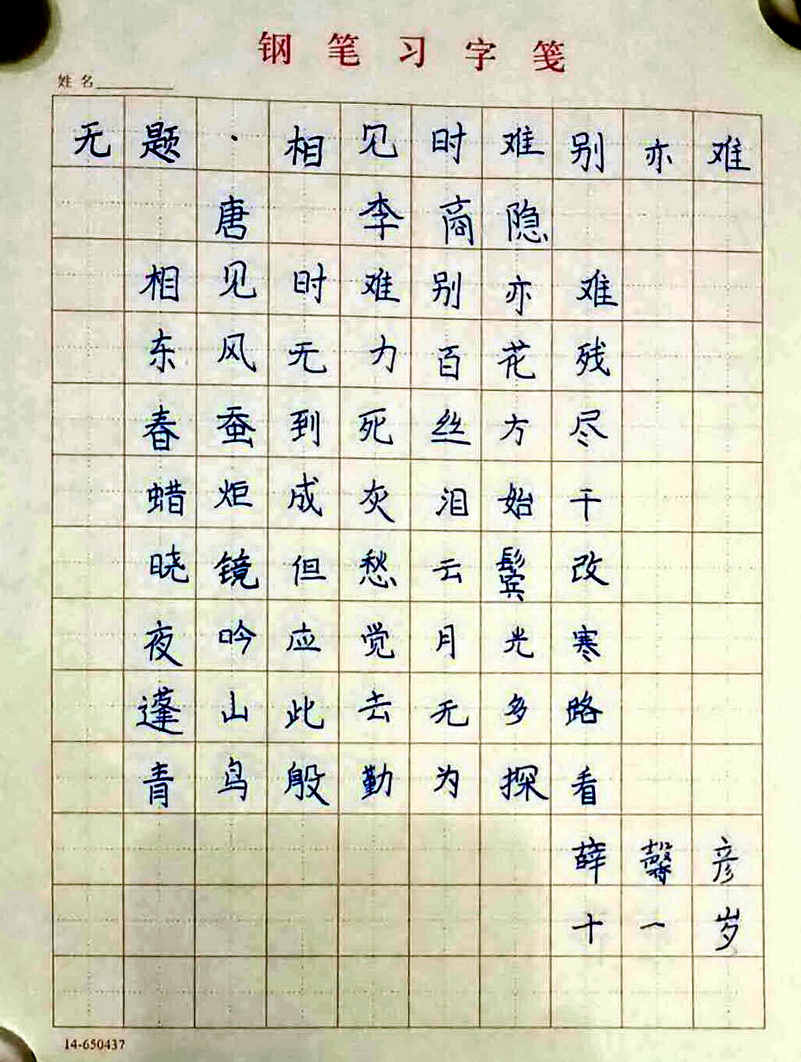 钢笔习字笺
姓名
无题·相见时难别亦难
唐 李商隐
相见时难别亦难
东风无力百花残
春蚕到死丝方尽
蜡炬成灰泪始干
晓镜但愁云鬓改
夜吟应觉月光寒
蓬山此去无多路
青鸟殷勤为探看
薛馨彦
十一岁
14-650437